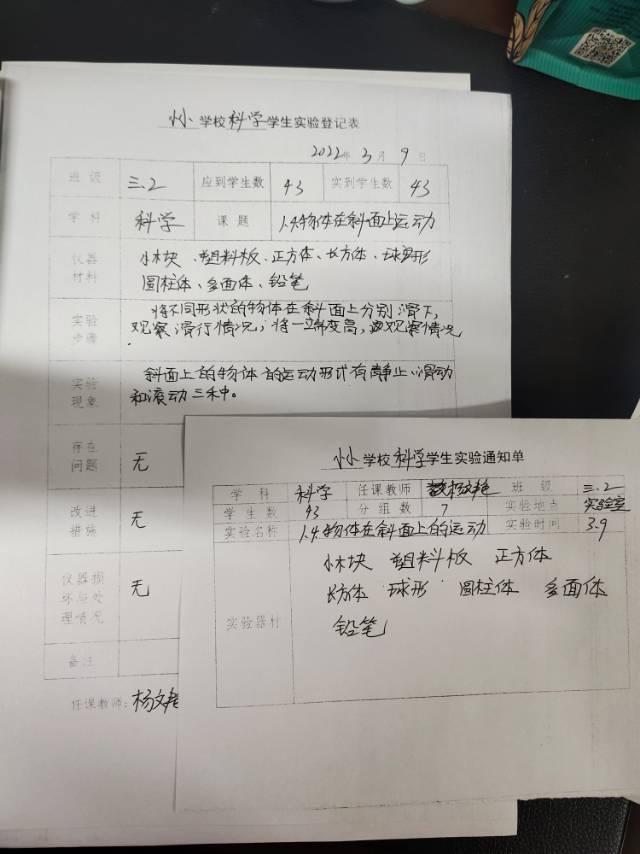 小 学校 科学 学生实验登记表
2022年 3月 9日
班级 三.2 应到学生数 43 实到学生数 43
学科 科学 课题 1.4物体在斜面上运动
仪器材料 小木块、塑料板、正方体、长方体、球形
圆柱体、多面体、铅笔
实验步骤 将不同形状的物体在斜面上分别滑下,
观察滑行情况;将一端变高,观察情况.
实验现象 斜面上的物体的运动形式有静止、滑动
和滚动三种。
存在问题 无
改进措施 无
仪器损坏与处理情况 无
备注
任课教师:杨文艳
小 学校 科学 学生实验通知单
学科 科学 任课教师 杨文艳 班级 三.2
学生数 43 分组数 7 实验地点 实验室
实验名称 1.4物体在斜面上的运动 实验时间 3.9
实验器材 小木块 塑料板 正方体
长方体 球形 圆柱体 多面体
铅笔